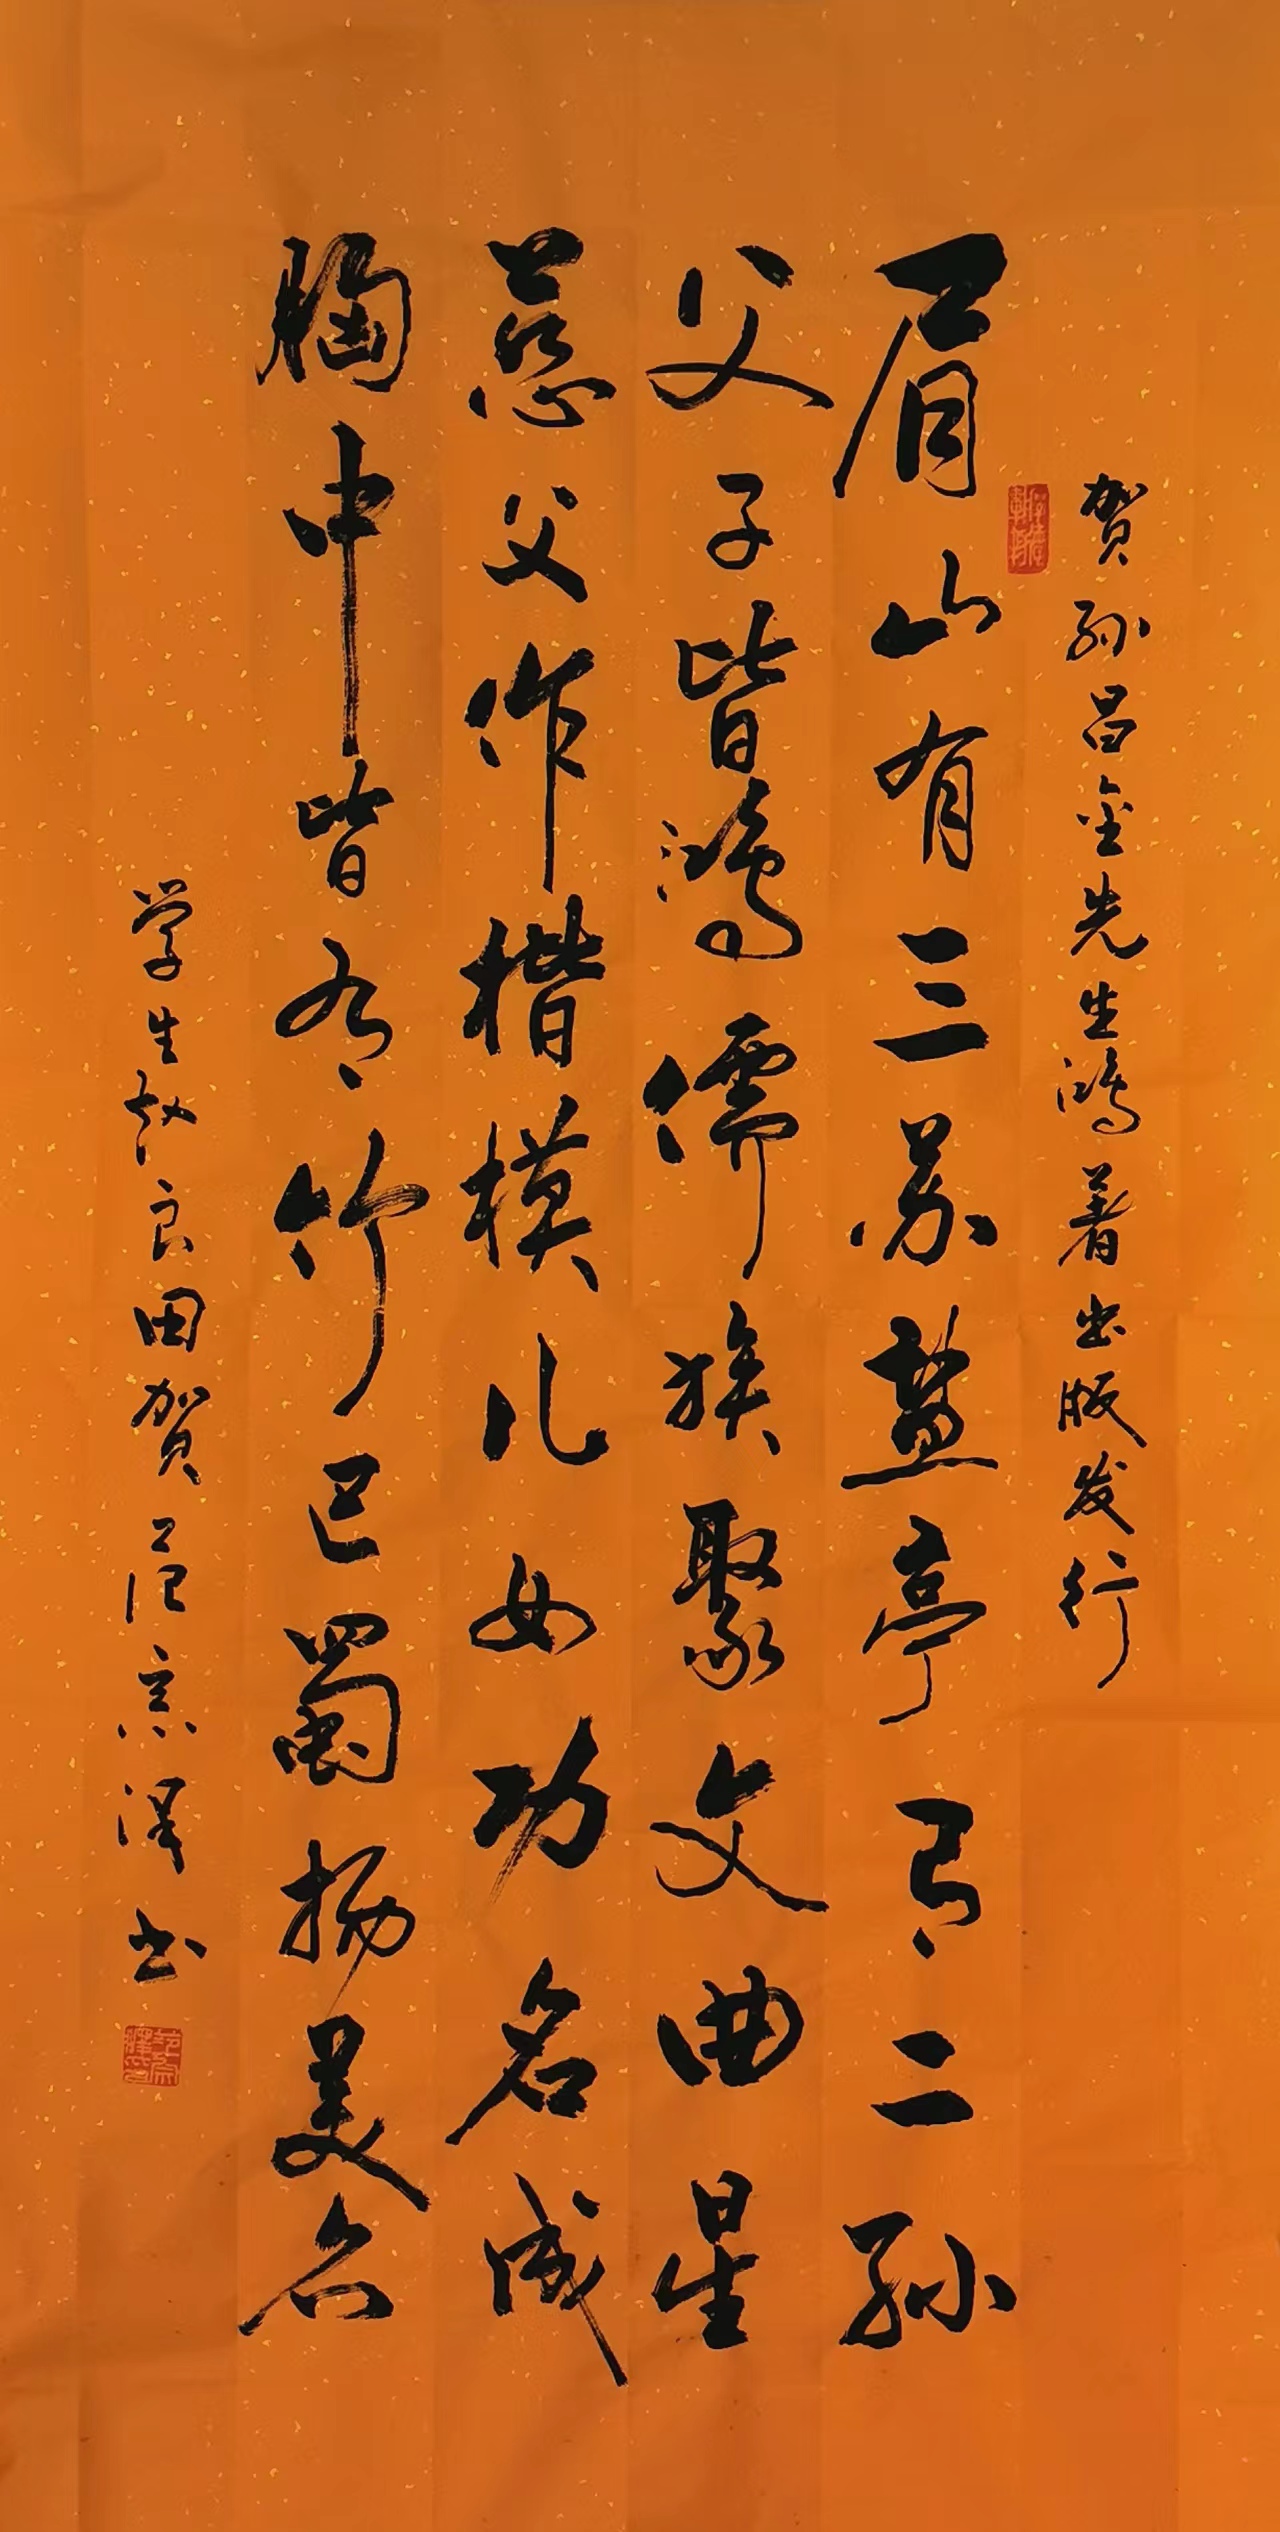 贺孙昌金先生鸿著出版发行
眉山有三苏盐亭有二孙
父子皆鸿儒族聚文曲星
慈父作楷模儿女功名成
胸中皆有竹巴蜀扬美名
学生赵良田贺范宗泽书